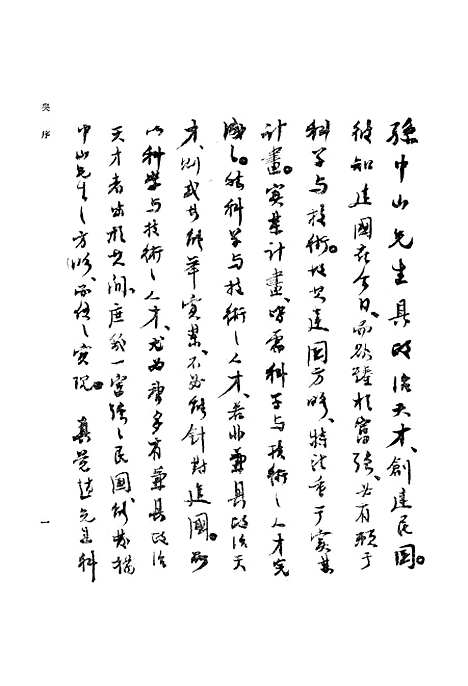 吳序
孫中山先生具政治天才、創建民國。
彼知建國在今日、而欲躋於富强、必有賴于
科学与技術。故其建国方略、特注重于實業
計畫。實業計畫、皆需科学与技術之人才完
成之。然科学与技術之人才、若非兼具政治天
才、則或其能華實業、不必能針對建國。所
以科學与技術之人才、尤必多有兼具政治
天才者出於其间、庶幾一富强之民國、能
中山先生之方略、而使之實現。 真先生科
一